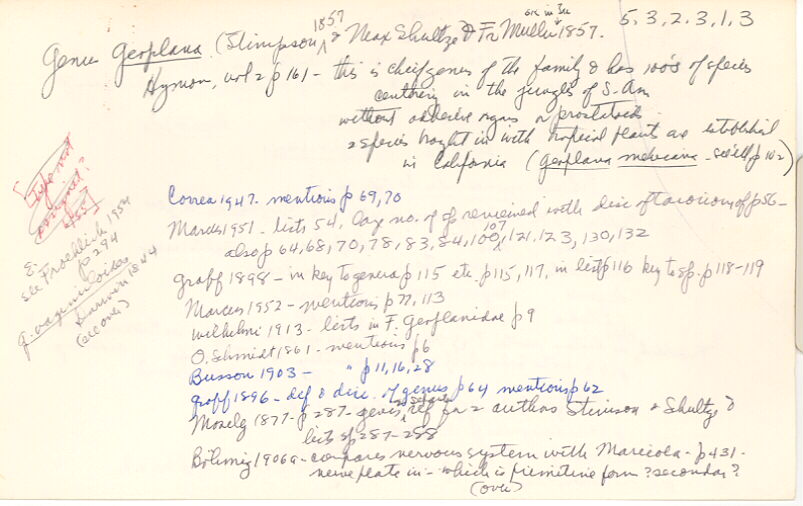 5, 3, 2, 3, 1, 3
Genus Geoplana (Stimpson, 1857 & Max Shultze & Fr Muller 1857.
Hyman, vol 2 p 161 - this is chief genus of the family & has 100's of species
centering in the jungles of S. Am
without adhesive organs or prostatoids
2 species brought in with tropical plants are established
in California (Geoplana mexicana - see p 102)
Type not
assigned?
S.
see Froehlich 1954
p 294
G. vaginuloides
Darwin 1844
(see over)
Correa 1947 - mentions p 69, 70
Marcus 1951 - lists 54, large no. of sp reviewed with disc of taxonomy of p 56 -
also p 64, 68, 70, 78, 83, 84, 100, 107, 121, 123, 130, 132
Graff 1898 - in key to genera p 115 etc. p 115, 117, in list p 116 key to sp. p 118-119
Marcus 1952 - mentions p 77, 113
Wilhelmi 1913 - lists in F. Geoplanidae p 9
O. Schmidt 1861 - mentions p 6
Busson 1903 - " p 11, 16, 28
Graff 1896 - def & disc. of genus p 64 mentions p 62
Mosely 1877 - p 287 - gives, as separate ref for 2 authors Stimson & Shultze &
lists sp 287-288
Böhmig 1906a - compares nervous system with Maricola - p 431 -
nerve plate in - which is primitive form ? secondary ?
(over)